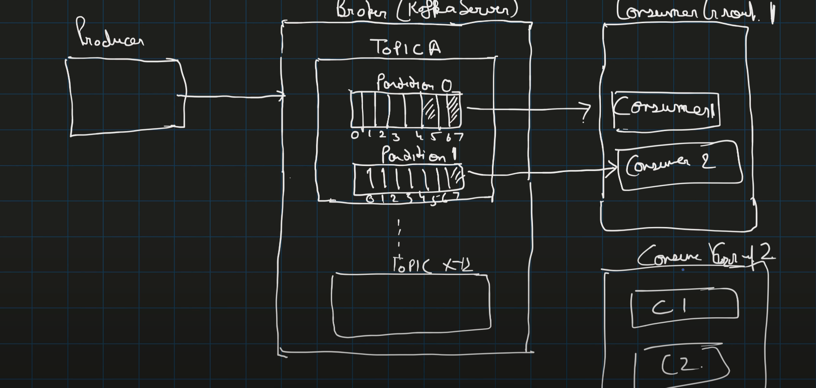 Producer
Broker (Kafka Server)
TOPIC A
Partition 0
0 1 2 3 4 5 6 7
Partition 1
0 1 2 3 4 5 6 7
TOPIC
Consumer Group 1
Consumer 1
Consumer 2
Consume Group 2
C1
C2